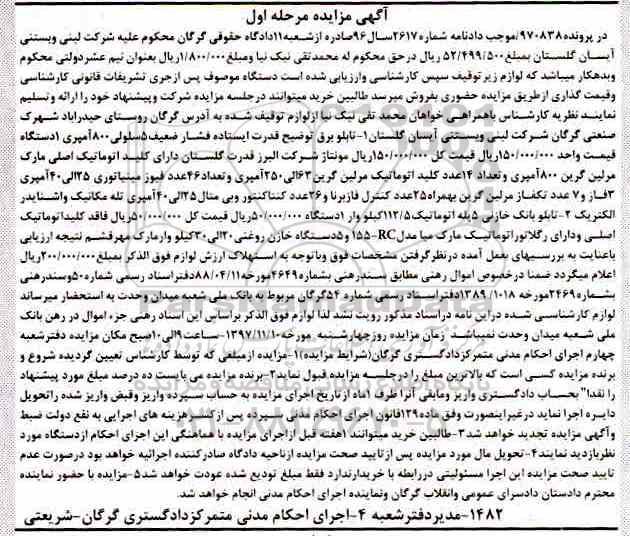 آگهی مزایده مرحله اول
در پرونده۹۷۰۸۳۸/موجب دادنامه شماره ۲۶۱۷سال۹۶صادره ازشعبه۱۱دادگاه حقوقی گرگان محکوم علیه شرکت لبنی وبستنی
آیسان گلستان بمبلغ۵۲/۴۹۹/۵۰۰ ریال درحق محکوم له محمدتقی نیک نیا ومبلغ۱/۸۰۰/۰۰۰ریال بعنوان نیم عشردولتی محکوم
وبدهکار میباشد که لوازم زیرتوقیف سپس کارشناسی وارزیابی شده است دستگاه موصوف پس ازجری تشریفات قانونی کارشناسی
وقیمت گذاری ازطریق مزایده حضوری بفروش میرسد طالبین خرید میتوانند درجلسه مزایده شرکت وپیشنهاد خود را ارائه وتسلیم
نمایند نظریه کارشناس باهمراهی خواهان محمد تقی نیک نیا ازلوازم توقیف شده به آدرس گرگان روستای حیدراباد شهرک
صنعتی گرگان شرکت لبنی وبستنی آیسان گلستان۱-تابلو برق توضیح قدرت ایستاده فشار ضعیف۵سلولی۸۰۰آمپری ۱دستگاه
قیمت واحد ۱۵۰/۰۰۰/۰۰۰ریال قیمت کل ۱۵۰/۰۰۰/۰۰۰ریال مونتاژ شرکت البرز قدرت گلستان دارای کلید اتوماتیک اصلی مارک
مرلین گرین ۸۰۰آمپری وتعداد ۱۴عدد کلید اتوماتیک مرلین گرین۶۳الی۲۵۰آمپری وتعداد۴۶عدد فیوز مینیاتوری ۲۵الی۴۰آمپری
۳فاز و۷ عدد تکفاز مرلین گرین بهمراه۲۵عدد کنترل فازبرنا و۳۶عدد کنتاکتور وبی متال۲۵الی۴۰آمپری تله مکانیک واشنایدر
الکتریک ۲-تابلو بانک خازنی ۵پله اتوماتیک۱۱۲/۵کیلو وار ۱دستگاه ۵۰/۰۰۰/۰۰۰ریال قیمت کل ۵۰/۰۰۰/۰۰۰ریال فاقد کلیداتوماتیک
اصلی ودارای رگلاتوراتوماتیک مارک مبا مدلRC-۱۵۵ و۵دستگاه خازن روغنی۲۰الی۳۰کیلو وارمارک مهرفشم نتیجه ارزیابی
باعنایت به بررسیهای بعمل آمده درنظرگرفتن مشخصات فوق وباتوجه به استهلاک ارزش لوازم فوق الذکر بمبلغ۲۰۰/۰۰۰/۰۰۰ریال
اعلام میگردد ضمنا درخصوص اموال رهنی مطابق سندرهنی بشماره۴۶۴۹مورخه۸۸/۰۴/۱۱دفتراسناد رسمی شماره۵۰وسندرهنی
بشماره۲۴۶۹مورخه ۱۳۸۹/۱۰۱۸دفتراسناد رسمی شماره ۵۴گرگان مربوط به بانک ملی شعبه میدان وحدت به استحضار میرساند
لوازم کارشناسی شده دراین نامه دراسناد مذکور رویت نشد لذا لوازم فوق الذکر براساس این اسناد رهنی جزء اموال در رهن بانک
ملی شعبه میدان وحدت نمیباشد زمان مزایده روزچهارشنبه مورخه۱۳۹۷/۱۱/۱۰-ساعت۹الی۱۰صبح مکان مزایده دفترشعبه
چهارم اجرای احکام مدنی متمرکزدادگستری گرگان(شرایط مزایده)۱-مزایده ازمبلغی که توسط کارشناس تعیین گردیده شروع و
برنده مزایده کسی است که بالاترین مبلغ را درجلسه مزایده قبول نماید۲-برنده مزایده می بایست ده درصد مبلغ مورد پیشنهاد
را نقدا" بحساب دادگستری واریز ومابقی آنرا ظرف ۱ماه ازتاریخ اجرای مزایده به حساب سپرده واریز وقبض واریز شده راتحویل
دایره اجرا نماید درغیراینصورت وفق ماده۱۲۹قانون اجرای احکام مدنی سپرده پس ازکسر هزینه های اجرایی به نفع دولت ضبط
وآگهی مزایده تجدید خواهد شد۳-طالبین خرید میتوانند۱هفته قبل ازاجرای مزایده با هماهنگی این اجرای احکام ازدستگاه مورد
نظربازدید نمایند۴-تحویل مال مورد مزایده پس ازتایید صحت مزایده ازناحیه دادگاه صادرکننده اجرائیه خواهد بود درصورت عدم
تایید صحت مزایده این اجرا مسئولیتی دررابطه با خریدارندارد فقط مبلغ تودیع شده عودت خواهد شد۵-مزایده با حضور نماینده
محترم دادستان دادسرای عمومی وانقلاب گرگان ونماینده اجرای احکام مدنی انجام خواهد شد.
۱۴۸۲-مدیردفترشعبه ۴-اجرای احکام مدنی متمرکزدادگستری گرگان-شریعتی